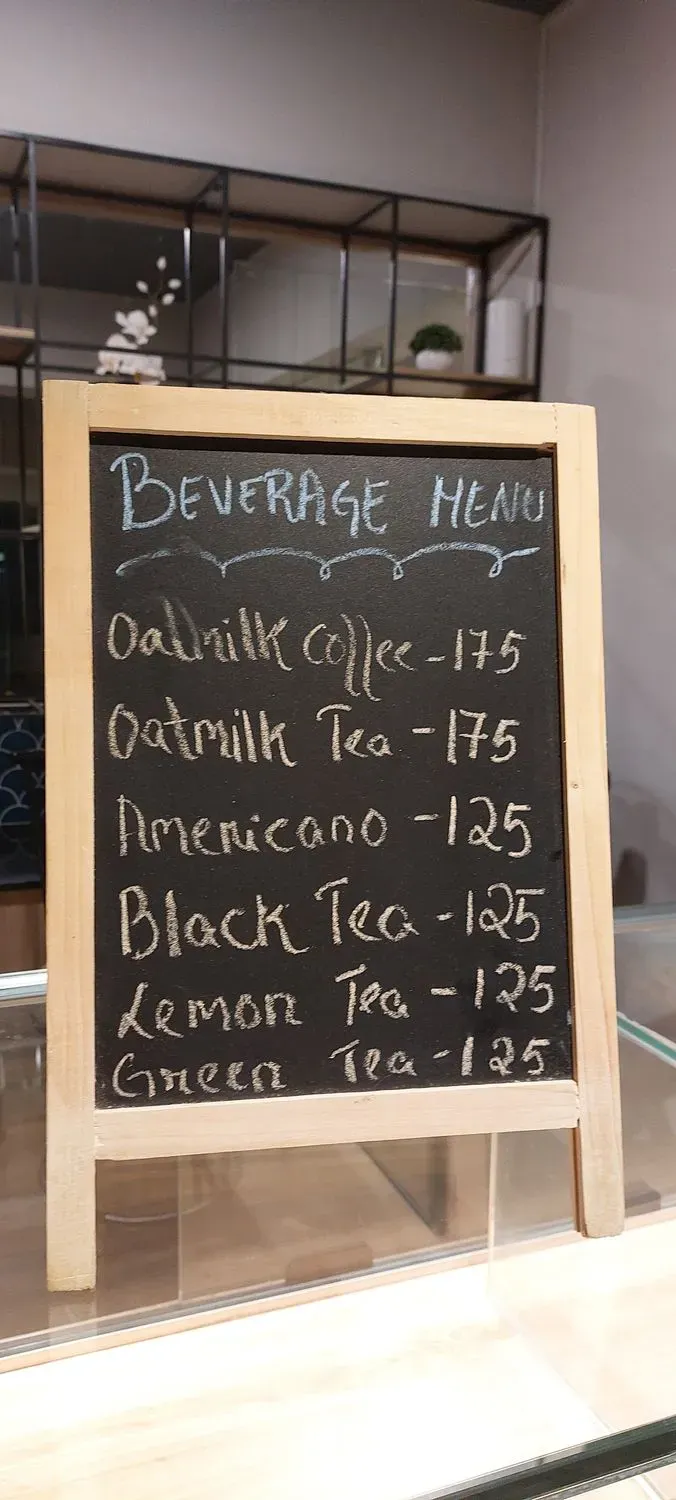 BEVERAGE MENU
Oatmilk Coffee - 175
Oatmilk Tea - 175
Americano - 125
Black Tea - 125
Lemon Tea - 125
Green Tea - 125